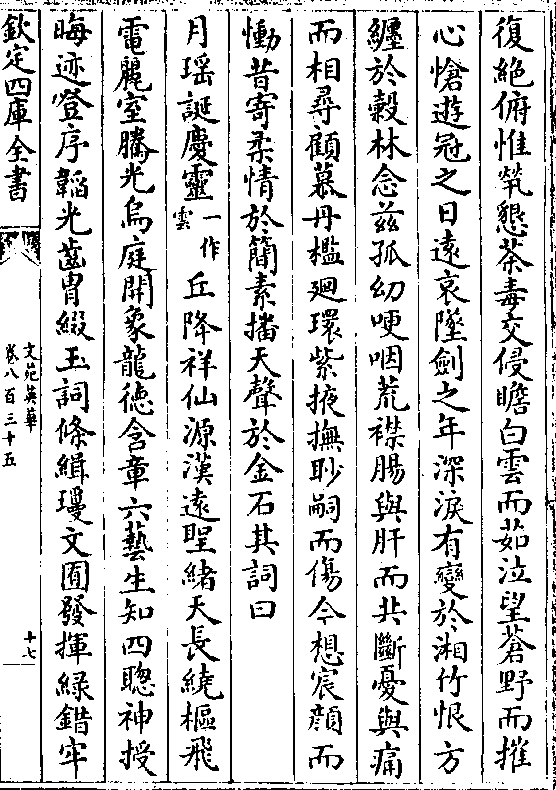 復絶俯惟煢懇荼毒交侵瞻白雲而茹泣望蒼野而摧
心愴遊冠之日遠哀墜劍之年深淚有變於湘竹恨方
纒於糓林念兹孤幼哽咽荒襟腸與肝而共斷憂與痛
而相尋顧慕丹檻廻環紫掖撫眇嗣而傷今想宸顔而
慟昔寄柔情於簡素播天聲於金石其詞曰
月瑶誕慶靈一作雲丘降祥仙源漢遠聖緒天長繞樞飛
電麗室騰光烏庭開象龍徳含章六藝生知四聰神授
晦迹登序韜光齒胄綴玉詞條緝瓊文囿發揮綠錯牢
欽定四庫全書
文苑英華
卷八百三十五
十七